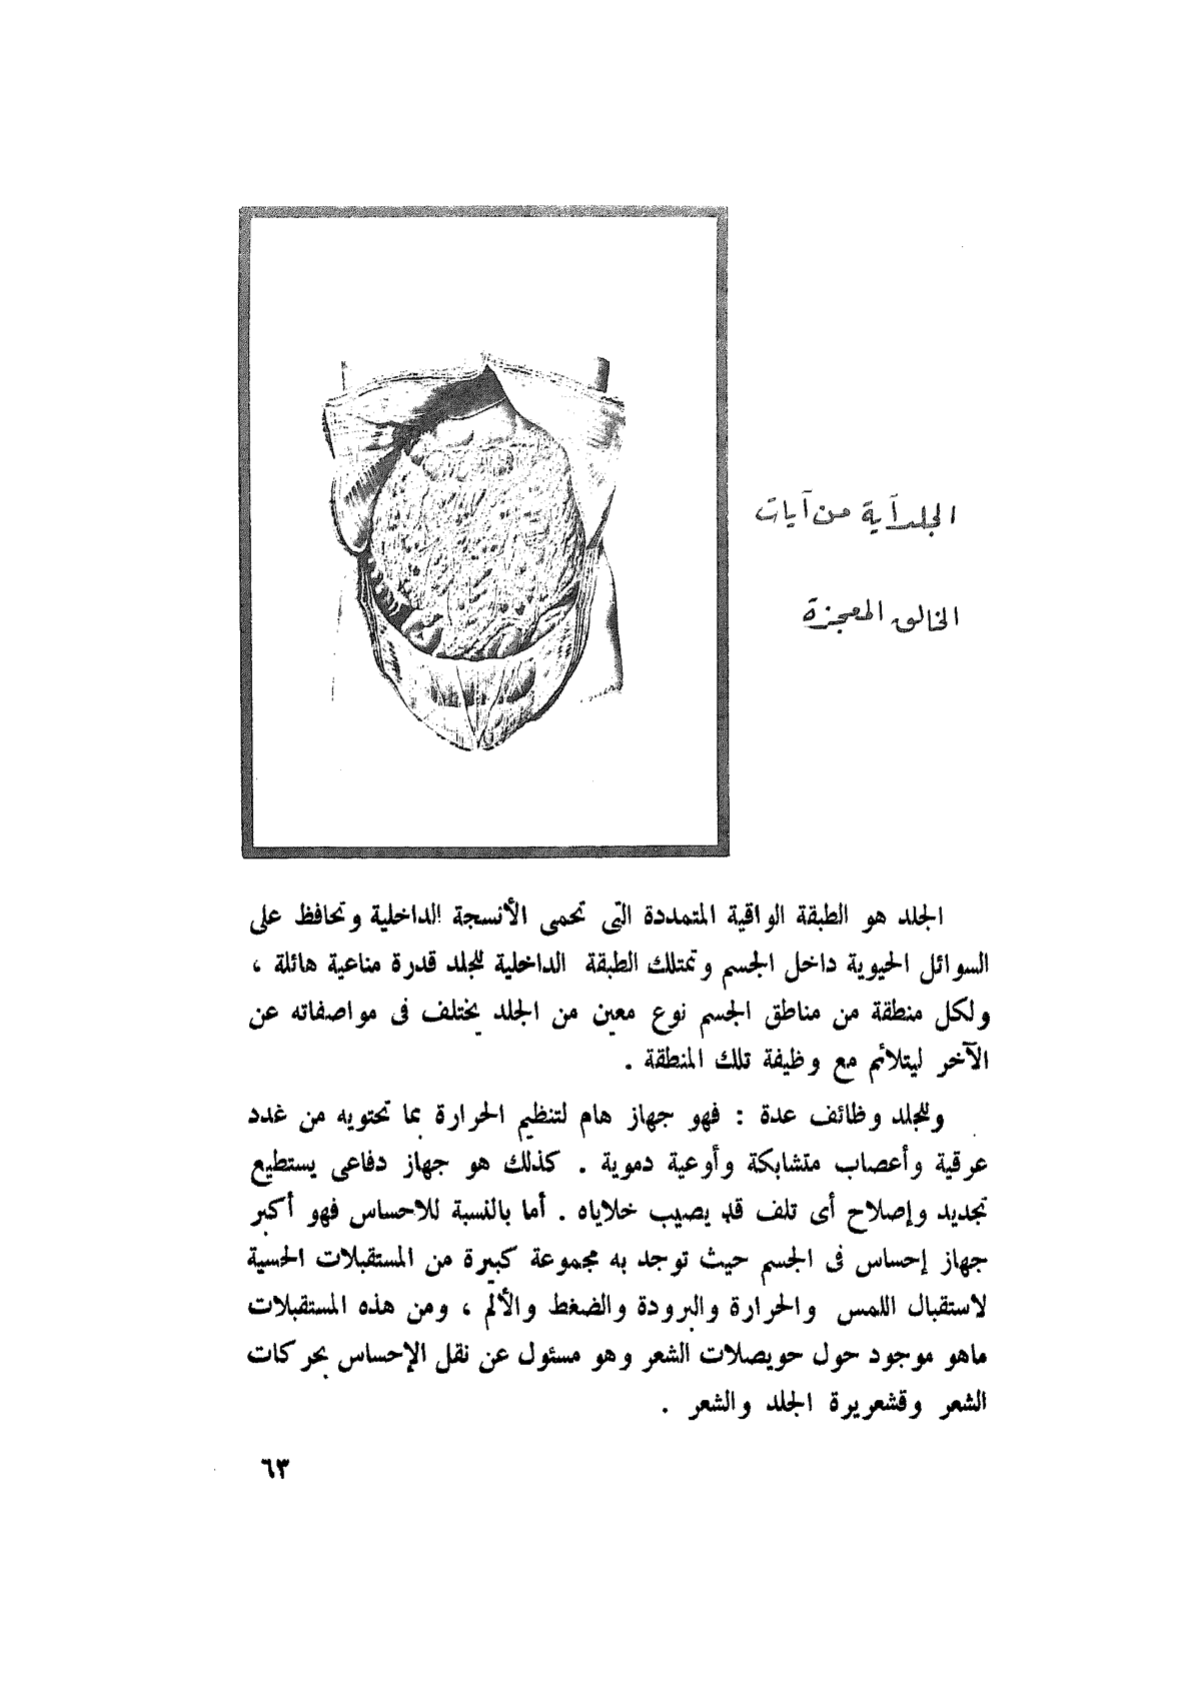 الجلد آية من آيات
الخالق المعجزة
الجلد هو الطبقة الواقية المتمددة التى تحمى الأنسجة الداخلية وتحافظ على
السوائل الحيوية داخل الجسم وتمتلك الطبقة الداخلية للجلد قدرة مناعية هائلة ،
ولكل منطقة من مناطق الجسم نوع معين من الجلد يختلف فى مواصفاته عن
الآخر ليتلائم مع وظيفة تلك المنطقة .
وللجلد وظائف عدة : فهو جهاز هام لتنظيم الحرارة بما تحتويه من غدد
عرقية وأعصاب متشابكة وأوعية دموية . كذلك هو جهاز دفاعى يستطيع
تجديد وإصلاح أى تلف قد يصيب خلاياه . أما بالنسبة للاحساس فهو أكبر
جهاز إحساس فى الجسم حيث توجد به مجموعة كبيرة من المستقبلات الحسية
لاستقبال اللمس والحرارة والبرودة والضغط والألم ، ومن هذه المستقبلات
ماهو موجود حول حويصلات الشعر وهو مسئول عن نقل الإحساس بحركات
الشعر وقشعريرة الجلد والشعر .
٦٣